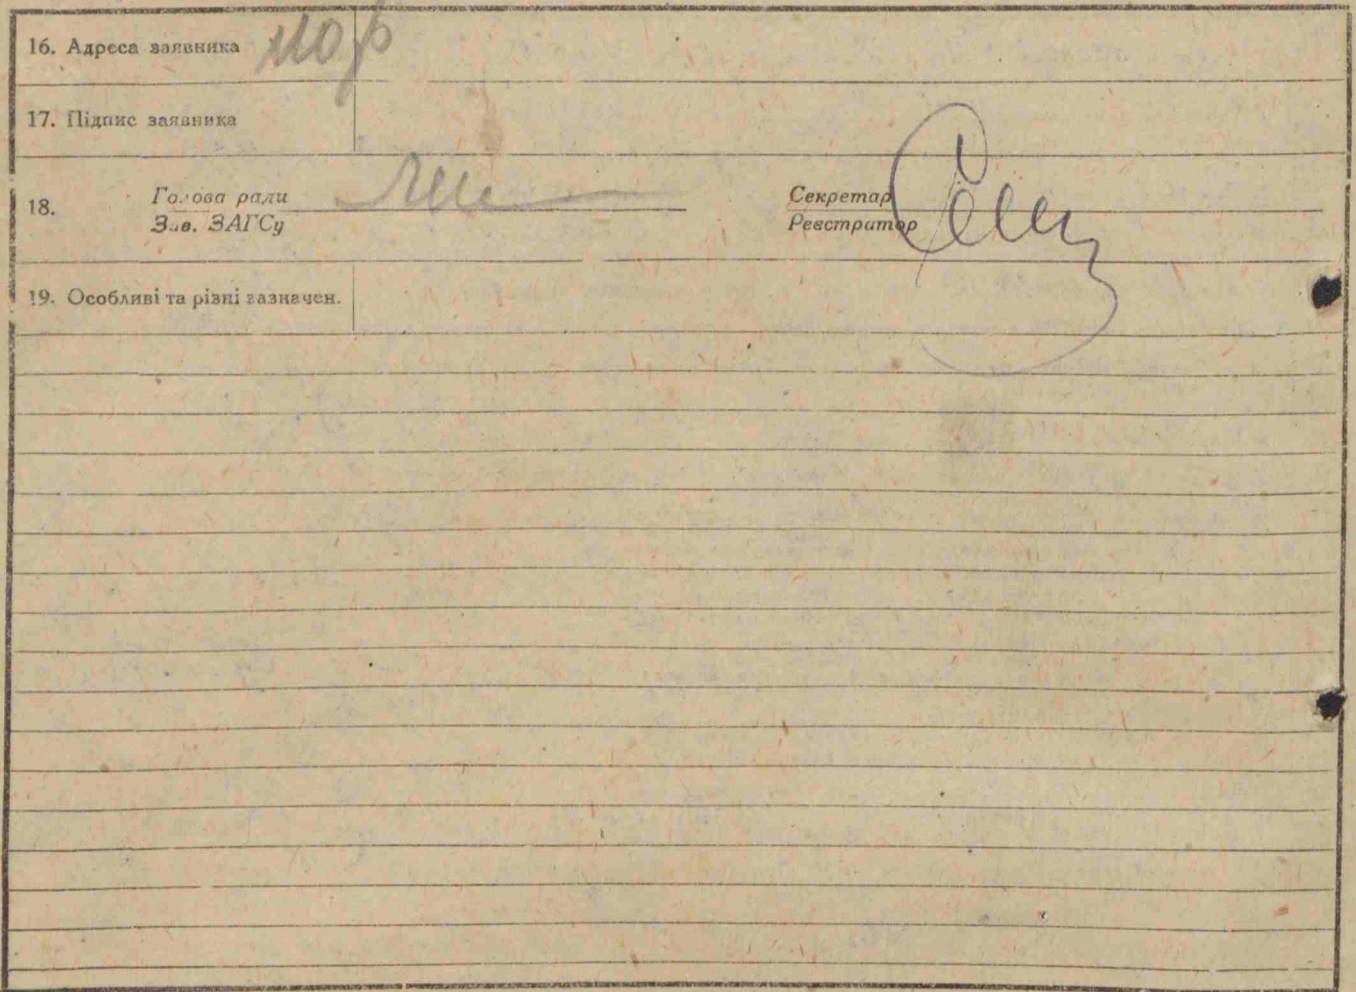 16. Адреса заявника
17. Підпис заявника
18. Голова ради Секретар
Зав. ЗАГСу Реєстратор
19. Особливі та різні зазначен.